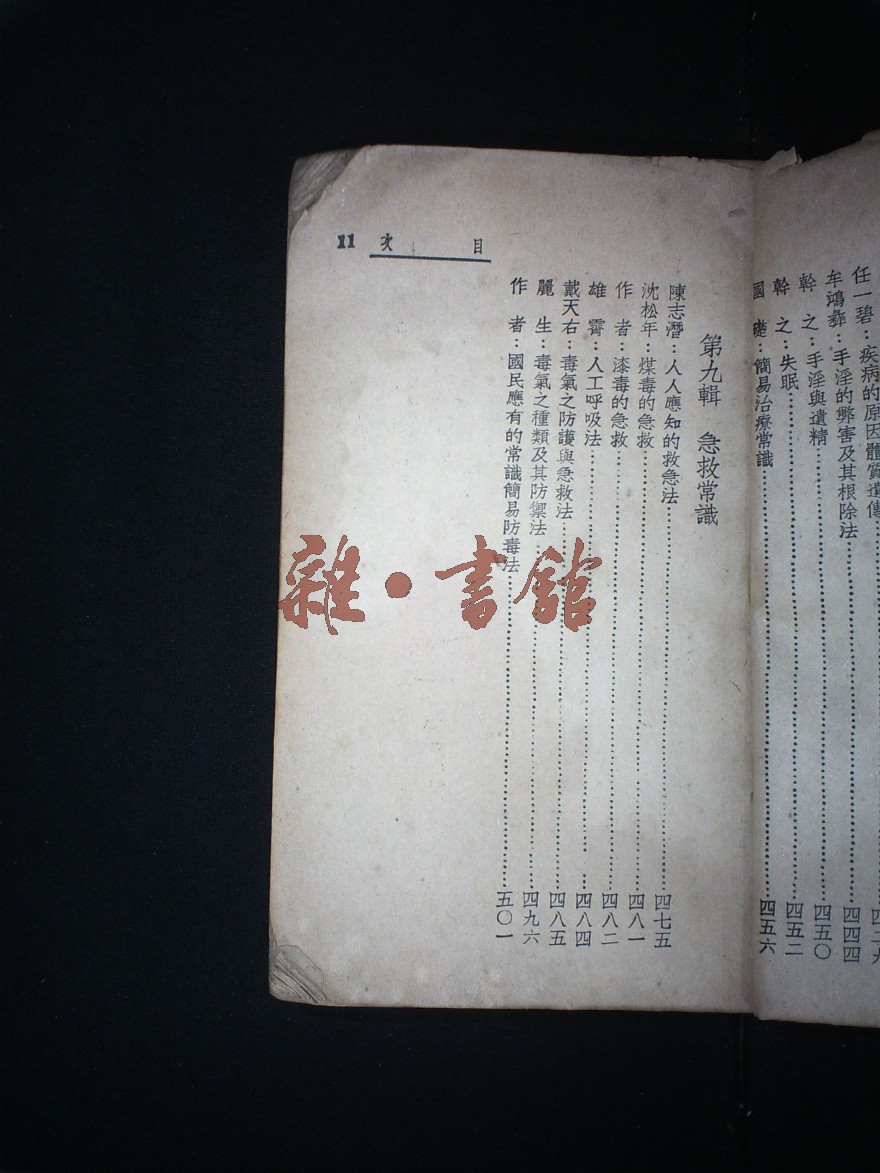 任一碧：疾病的原因體質遺傳
牟鴻彝：手淫的弊害及其根除法……四四四
幹之：手淫與遺精……四五〇
幹之：失眠……四五二
國：簡易治療常識……四五六
目次 11
第九輯 急救常識
陳志潛：人人應知的救急法……四七五
沈松年：煤毒的急救……四八一
作者：漆毒的急救……四八二
雄霄：人工呼吸法……四八四
戴天右：毒氣之防護與急救法……四八五
麗生：毒氣之種類及其防禦法……四九六
作者：國民應有的常識簡易防毒法……五〇一
雜·書館